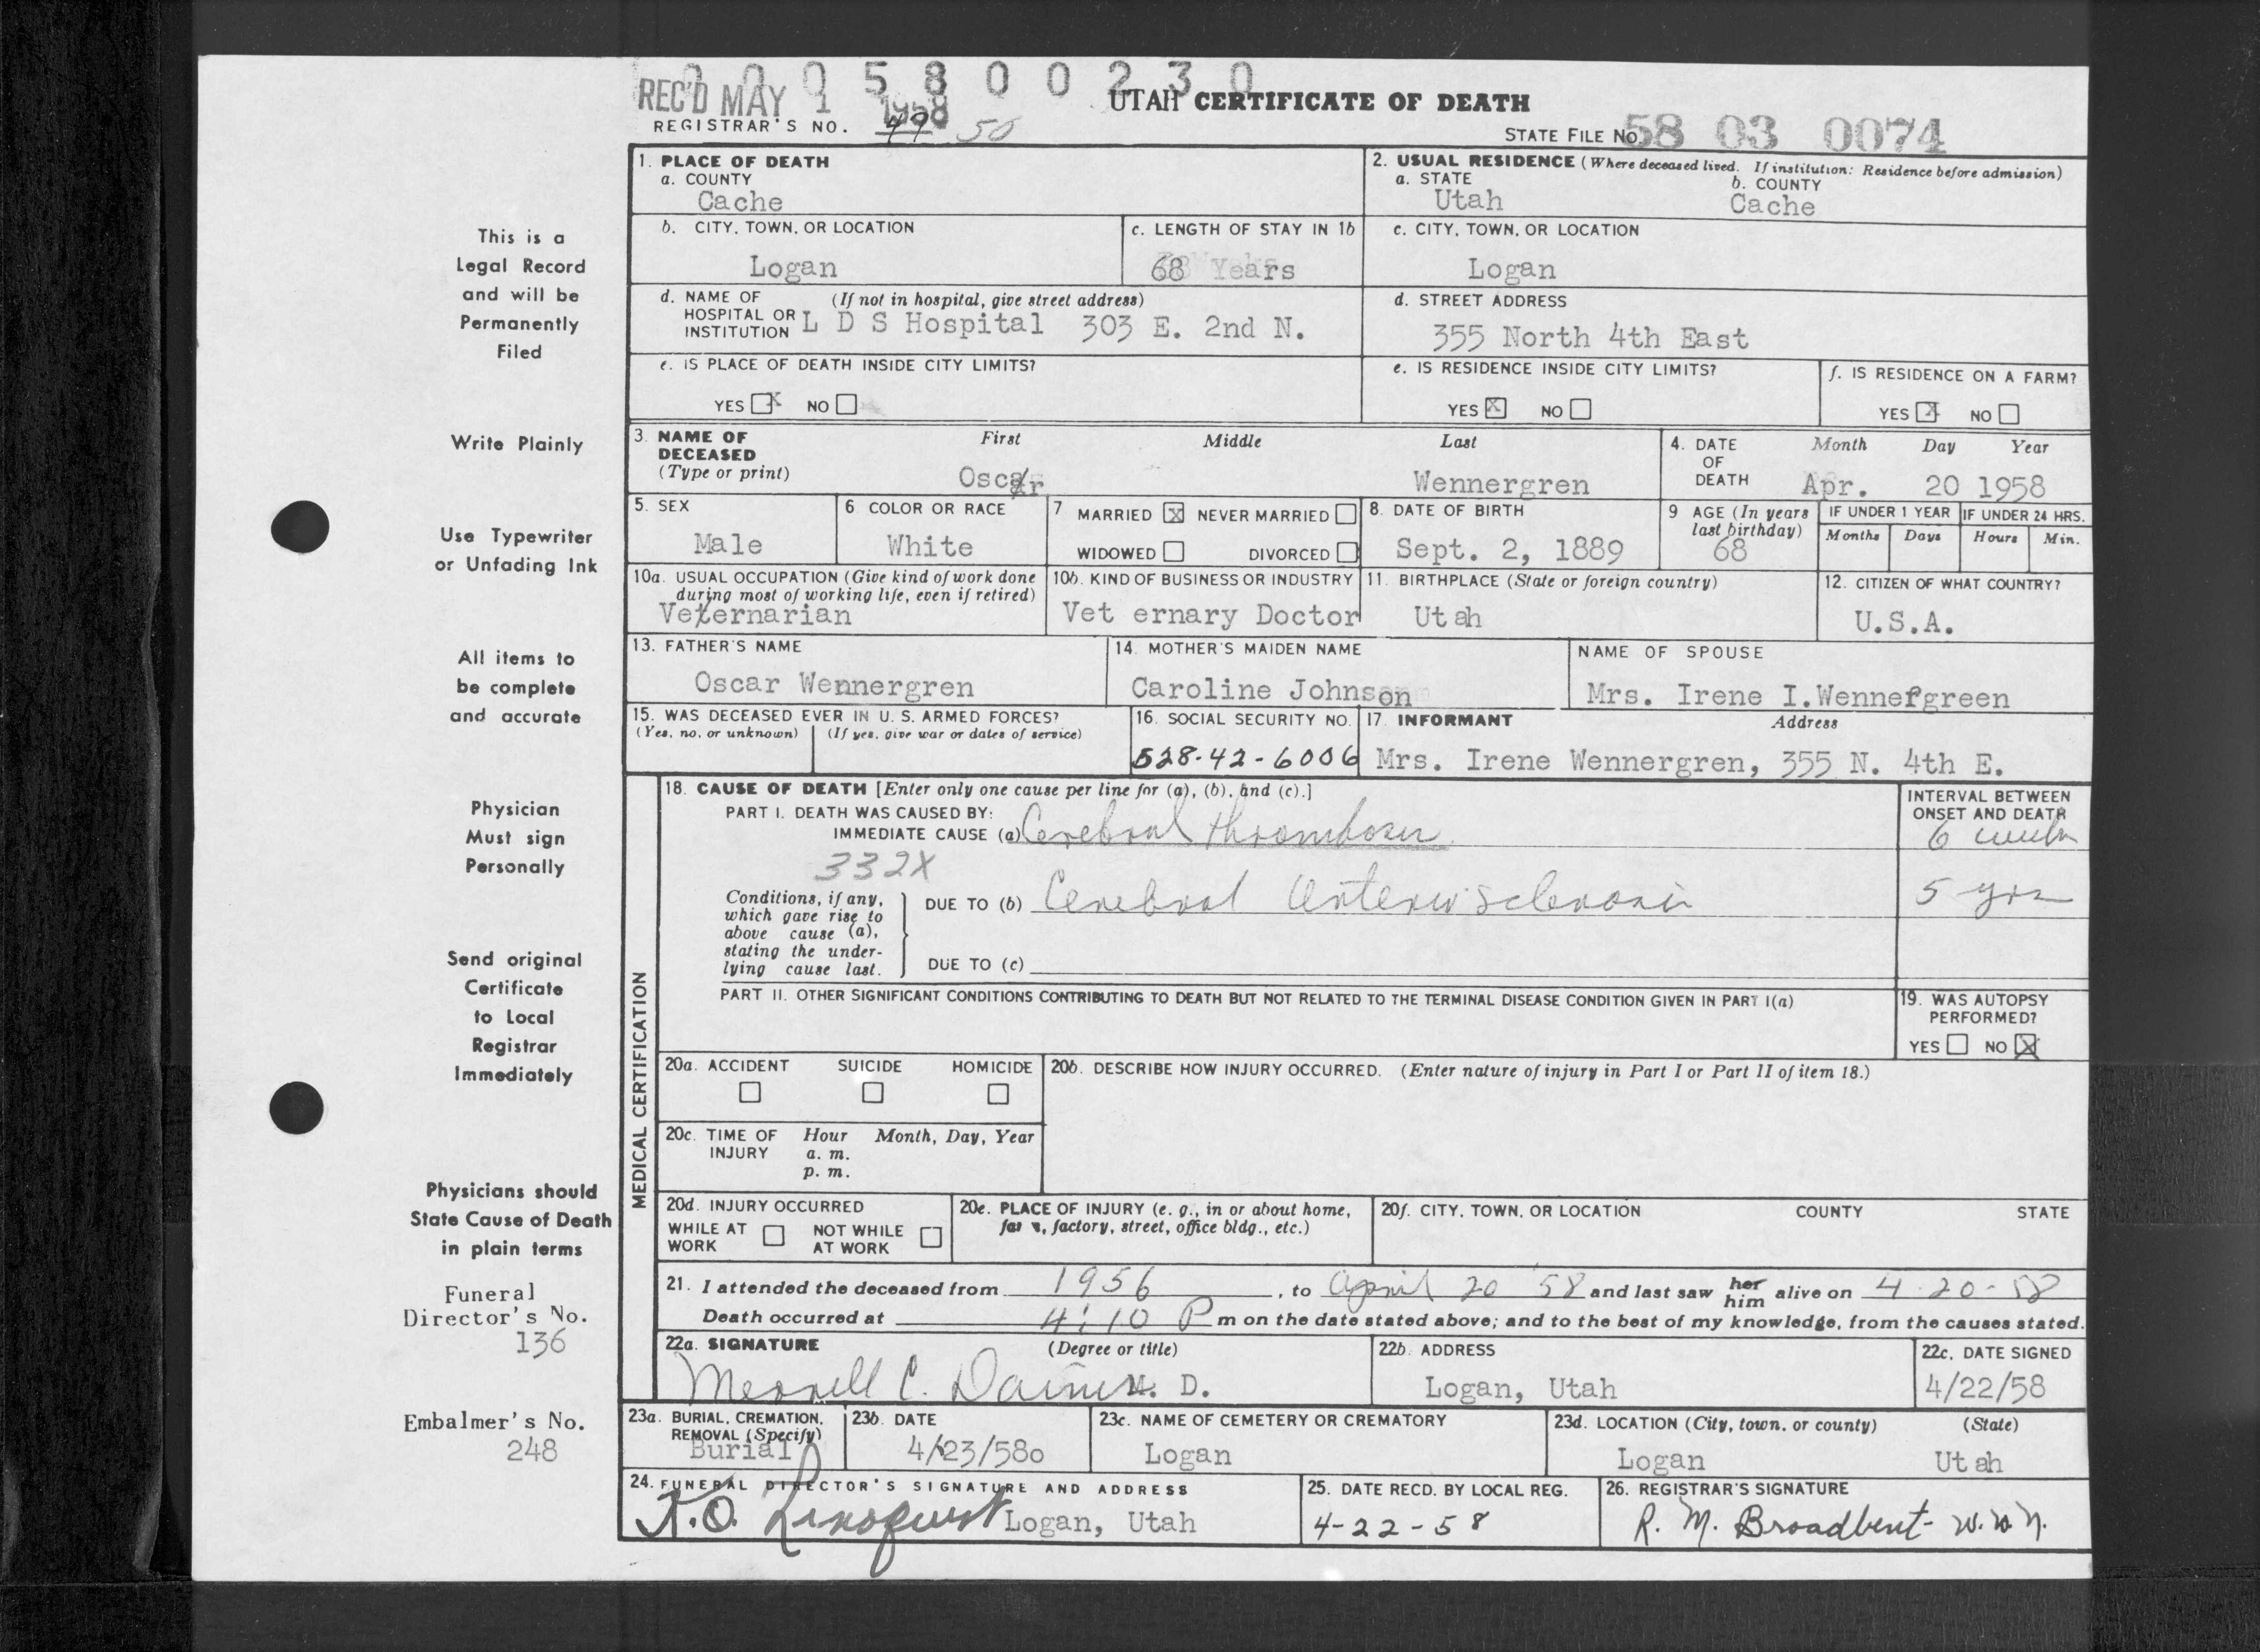 0 0 0 5 8 0 0 2 3 0
REC'D MAY 1 1958
UTAH CERTIFICATE OF DEATH
REGISTRAR'S NO. 49 50
STATE FILE No. 58 03 0074
This is a
Legal Record
and will be
Permanently
Filed
Write Plainly
Use Typewriter
or Unfading Ink
All items to
be complete
and accurate
Physician
Must sign
Personally
Send original
Certificate
to Local
Registrar
Immediately
Physicians should
State Cause of Death
in plain terms
Funeral
Director's No.
136
Embalmer's No.
248
1. PLACE OF DEATH
a. COUNTY
Cache
2. USUAL RESIDENCE (Where deceased lived. If institution: Residence before admission)
a. STATE
Utah
b. COUNTY
Cache
b. CITY, TOWN, OR LOCATION
Logan
c. LENGTH OF STAY IN 1b
68 Years
c. CITY, TOWN, OR LOCATION
Logan
d. NAME OF (If not in hospital, give street address)
HOSPITAL OR
INSTITUTION L D S Hospital 303 E. 2nd N.
d. STREET ADDRESS
355 North 4th East
e. IS PLACE OF DEATH INSIDE CITY LIMITS?
YES X NO
e. IS RESIDENCE INSIDE CITY LIMITS?
YES X NO
f. IS RESIDENCE ON A FARM?
YES X NO
3. NAME OF
DECEASED
(Type or print)
First Middle Last
Oscar Wennergren
4. DATE
OF
DEATH
Month Day Year
Apr. 20 1958
5. SEX
Male
6 COLOR OR RACE
White
7 MARRIED X NEVER MARRIED
WIDOWED DIVORCED
8. DATE OF BIRTH
Sept. 2, 1889
9 AGE (In years
last birthday)
68
IF UNDER 1 YEAR
Months Days
IF UNDER 24 HRS.
Hours Min.
10a. USUAL OCCUPATION (Give kind of work done
during most of working life, even if retired)
Veternarian
10b. KIND OF BUSINESS OR INDUSTRY
Vet ernary Doctor
11. BIRTHPLACE (State or foreign country)
Utah
12. CITIZEN OF WHAT COUNTRY?
U.S.A.
13. FATHER'S NAME
Oscar Wennergren
14. MOTHER'S MAIDEN NAME
Caroline Johnson
NAME OF SPOUSE
Mrs. Irene I.Wennergreen
15. WAS DECEASED EVER IN U. S. ARMED FORCES?
(Yes, no, or unknown) (If yes, give war or dates of service)
16. SOCIAL SECURITY NO.
528-42-6006
17. INFORMANT Address
Mrs. Irene Wennergren, 355 N. 4th E.
MEDICAL CERTIFICATION
18. CAUSE OF DEATH [Enter only one cause per line for (a), (b), and (c).]
PART I. DEATH WAS CAUSED BY:
IMMEDIATE CAUSE (a) Cerebral thrombosis
332X
INTERVAL BETWEEN
ONSET AND DEATH
6 weeks
Conditions, if any,
which gave rise to
above cause (a),
stating the under-
lying cause last.
DUE TO (b) Cerebral Arteriosclerosis
5 yrs
DUE TO (c)
PART II. OTHER SIGNIFICANT CONDITIONS CONTRIBUTING TO DEATH BUT NOT RELATED TO THE TERMINAL DISEASE CONDITION GIVEN IN PART I(a)
19. WAS AUTOPSY
PERFORMED?
YES NO X
20a. ACCIDENT SUICIDE HOMICIDE
20b. DESCRIBE HOW INJURY OCCURRED. (Enter nature of injury in Part I or Part II of item 18.)
20c. TIME OF Hour Month, Day, Year
INJURY a. m.
p. m.
20d. INJURY OCCURRED
WHILE AT NOT WHILE
WORK AT WORK
20e. PLACE OF INJURY (e. g., in or about home,
farm, factory, street, office bldg., etc.)
20f. CITY, TOWN, OR LOCATION COUNTY STATE
21. I attended the deceased from 1956, to April 20 '58 and last saw her him alive on 4-20-58
Death occurred at 4:10 P m on the date stated above; and to the best of my knowledge, from the causes stated.
22a. SIGNATURE (Degree or title)
Merrell C. Daines M. D.
22b. ADDRESS
Logan, Utah
22c. DATE SIGNED
4/22/58
23a. BURIAL, CREMATION,
REMOVAL (Specify)
Burial
23b. DATE
4/23/580
23c. NAME OF CEMETERY OR CREMATORY
Logan
23d. LOCATION (City, town, or county) (State)
Logan Utah
24. FUNERAL DIRECTOR'S SIGNATURE AND ADDRESS
K.O. Lindquist Logan, Utah
25. DATE RECD. BY LOCAL REG.
4-22-58
26. REGISTRAR'S SIGNATURE
R. M. Broadbent - W.W.N.